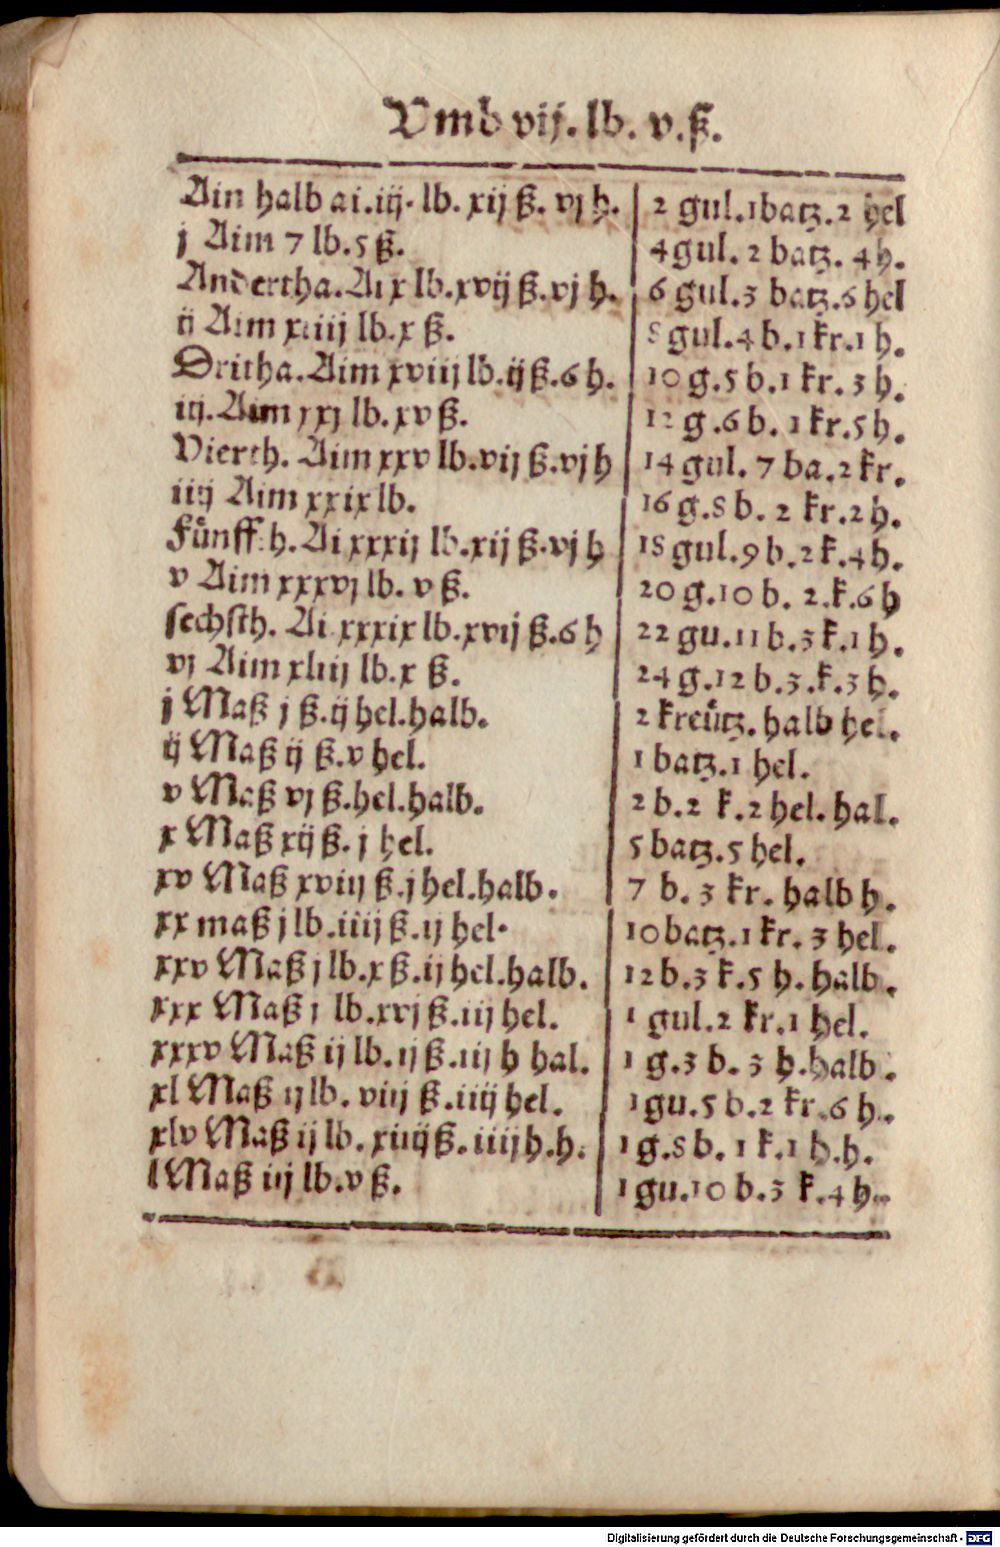 Vmb vij. lb. v.ß.
Ain halb ai.iij. lb. xij ß. vj h. 2 gul.1batz.2 hel
j Aim 7 lb.5 ß. 4gul. 2 batz. 4h.
Andertha.Ai x lb.xvij ß.vj h. 6 gul.3 batz.6 hel
ij Aim xiiij lb.x ß. 8 gul.4 b.1 kr.1 h.
Dritha.Aim xviij lb.ij ß.6 h. 10 g.5 b.1 kr. 3 h.
iij.Aim xxj lb.xv ß. 12 g.6 b. 1 kr.5 h.
Vierth. Aim xxv lb.vij ß.vj h 14 gul. 7 ba.2 kr.
iiij Aim xxix lb. 16 g.8 b. 2 kr.2 h.
Fünff.h. Ai xxxij lb.xij ß.vj h 18 gul.9 b.2 k.4 h.
v Aim xxxvj lb. v ß. 20 g.10 b. 2.k.6 h
sechsth. Ai.xxxix lb.xvij ß.6 h 22 gu.11 b.3 k.1 h.
vj Aim xliij lb.x ß. 24 g.12 b.3.k.3 h.
j Maß j ß.ij hel.halb. 2 kreütz. halb hel.
ij Maß ij ß.v hel. 1 batz.1 hel.
v Maß vj ß.hel.halb. 2 b.2 k.2 hel. hal.
x Maß xij ß. j hel. 5 batz.5 hel.
xv Maß xviij ß.j hel.halb. 7 b. 3 kr. halb h.
xx maß j lb.iiij ß.ij hel. 10 batz.1 kr. 3 hel.
xxv Maß j lb.x ß.ij hel.halb. 12 b.3 k.5 h. halb.
xxx Maß j lb.xvj ß.iij hel. 1 gul.2 kr.1 hel.
xxxv Maß ij lb.ij ß.iij h hal. 1 g.3 b. 3 h.halb.
xl Maß ij lb. viij ß.iiij hel. 1gu.5 b.2 kr.6 h.
xlv Maß ij lb. xiiij ß.iiij h.h. 1 g.8 b. 1 k.1 h.h.
l Maß iij lb.v ß. 1 gu.10 b.3 k.4 h.
Digitalisierung gefördert durch die Deutsche Forschungsgemeinschaft - DFG